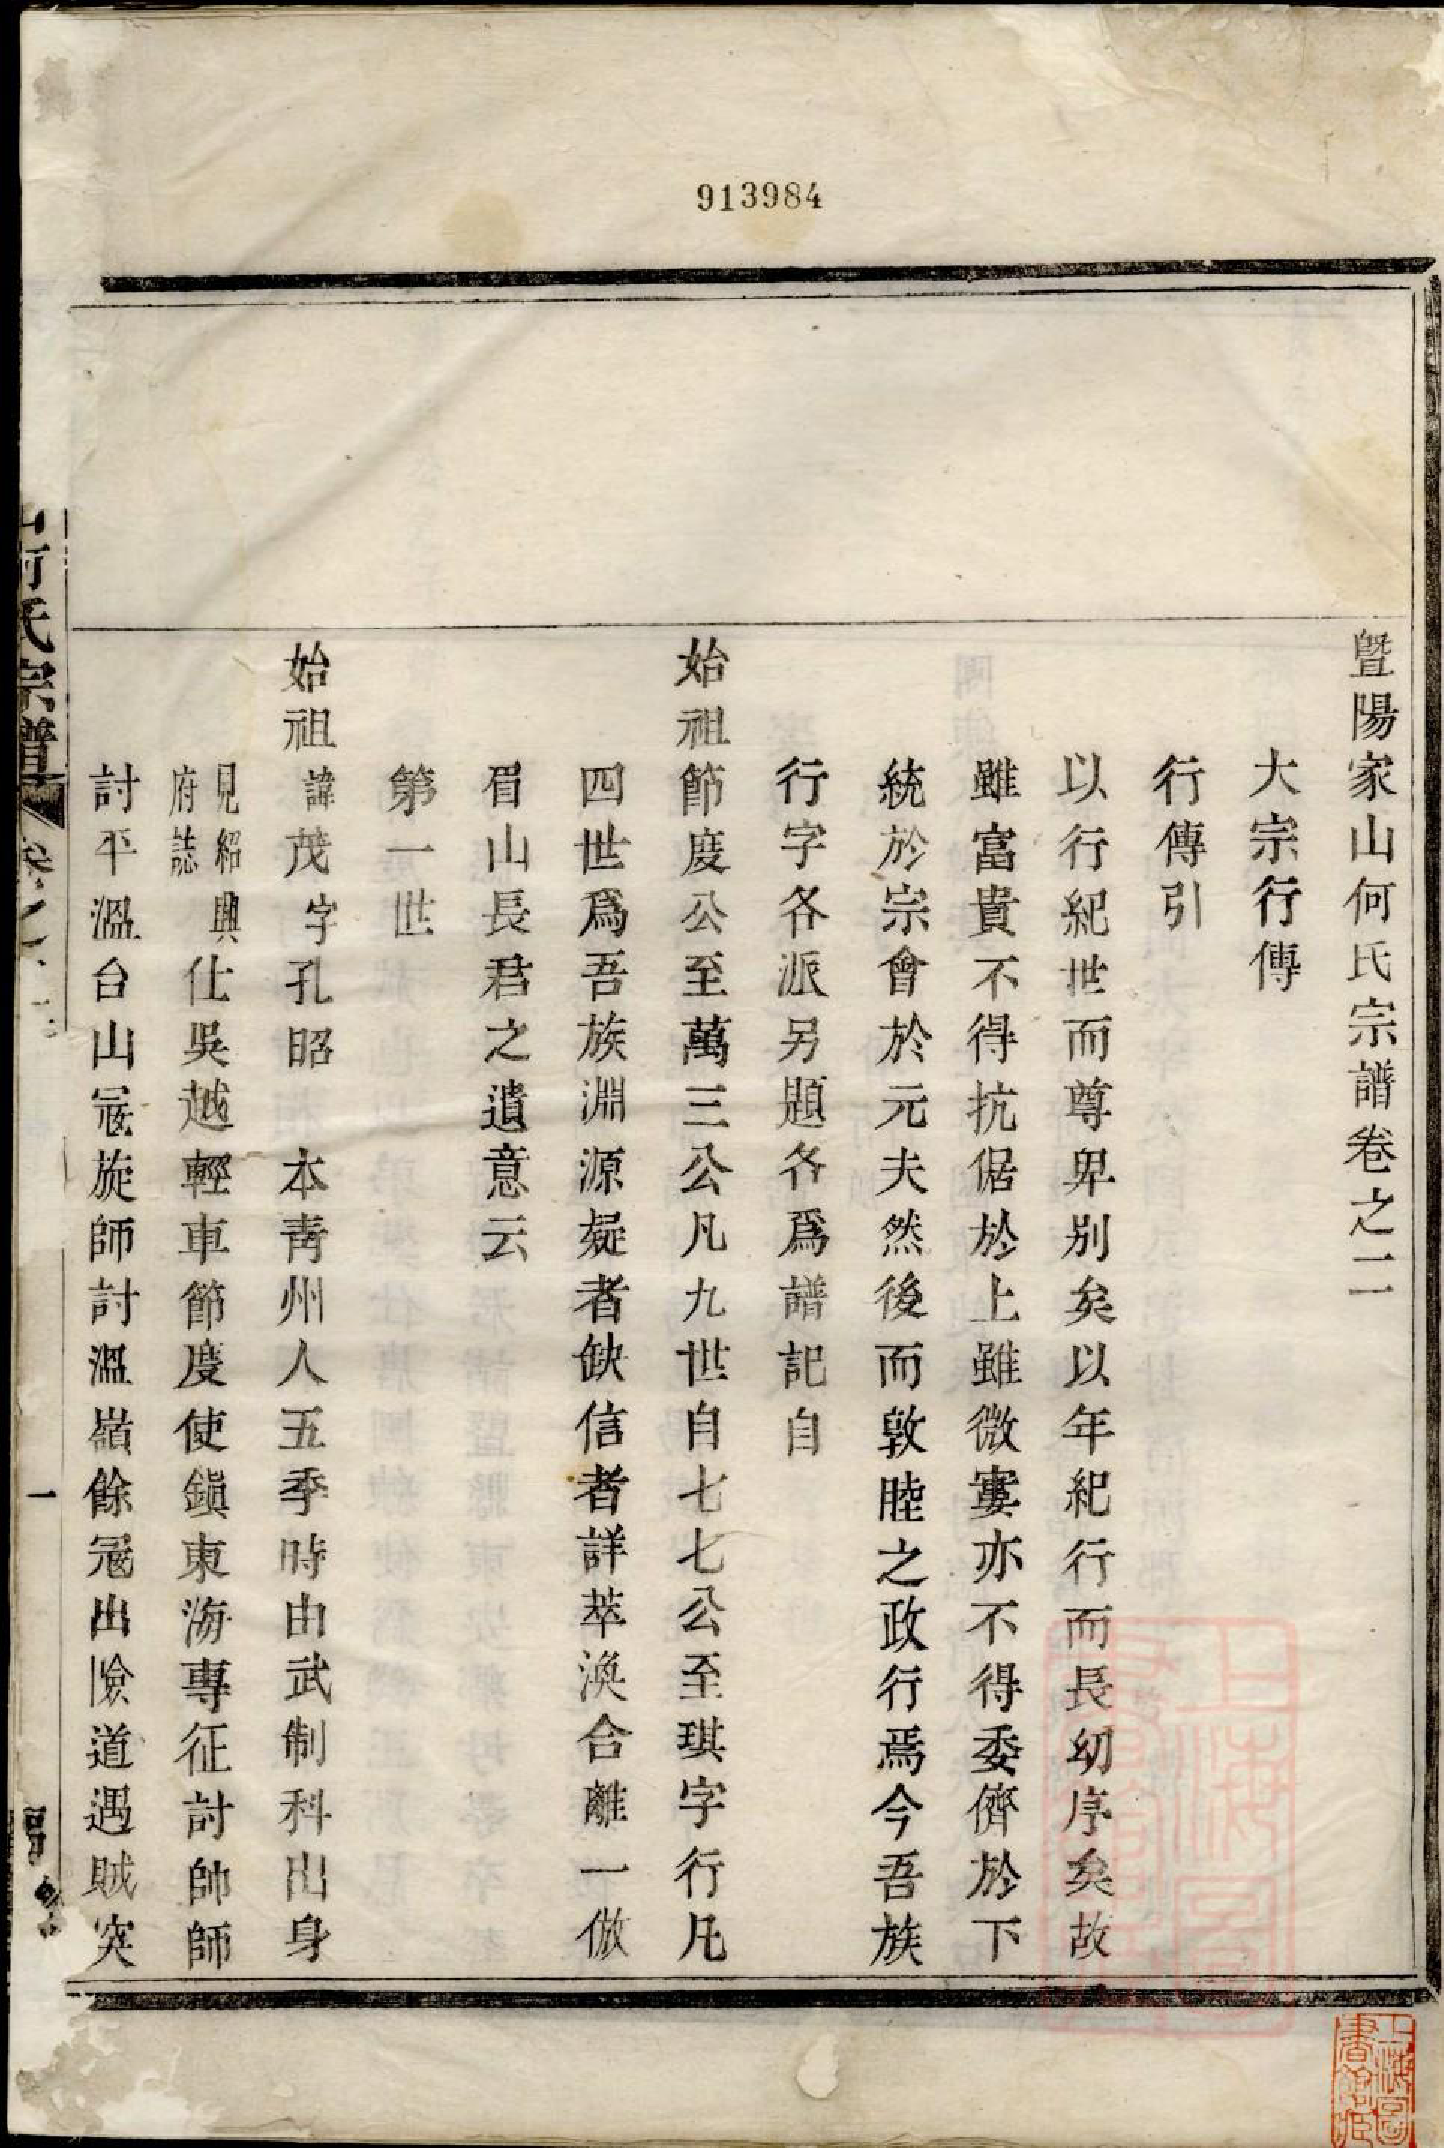 913984
暨陽家山何氏宗譜卷之二
大宗行傳
行傳引
以行紀世而尊卑別矣以年紀行而長幼序矣故
雖富貴不得抗倨於上雖微寠亦不得委儕於下
統於宗會於元夫然後而敦睦之政行焉今吾族
行字各派另題各爲譜記自
始祖節度公至萬三公凡九世自七七公至琪字行凡
四世爲吾族淵源疑者缺信者詳萃渙合離一倣
眉山長君之遺意云
第一世
始祖諱茂字孔昭 本靑州人五季時由武制科出身
見紹興府誌仕吳越輕車節度使鎭東海專征討帥師
討平溫台山寇旋師討溫嶺餘寇出險道遇賊突
山何氏宗譜 卷之二 一
上海圖書館藏